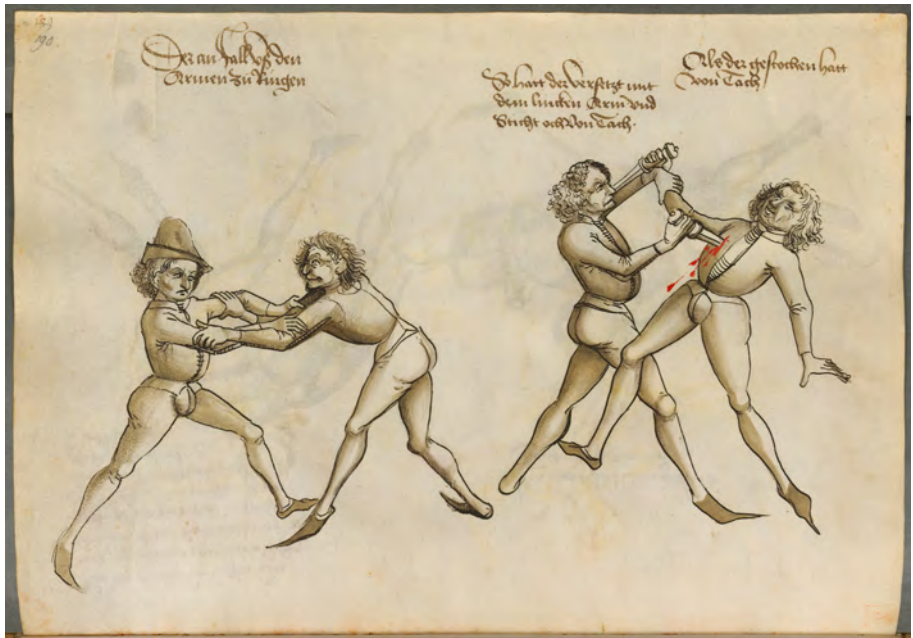 190.
Der an fall vß den
Armen zu Ringen
So hatt der versetzt mitt
dem lincken Arm vnd
Sticht och von Tach.
Als der gestochen hatt
von Tach